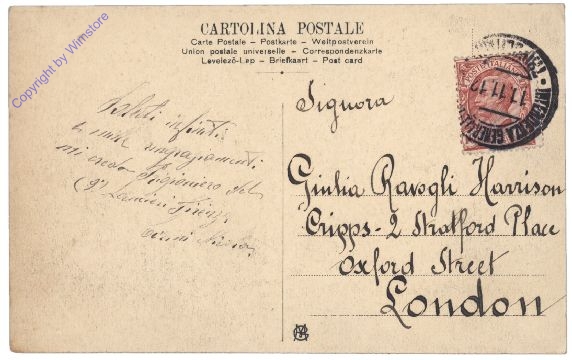 Copyright by Wimstore
CARTOLINA POSTALE
Carte Postale – Postkarte – Weltpostverein
Union postale universelle – Correspondenzkarte
Levelező-Lap – Briefkaart – Post card
11.11.12
Signora
Giulia Ravogli Harrison
Cripps - 2 Stratford Place
Oxford Street
London
Saluti infiniti
e mille ringraziamenti
mi credo